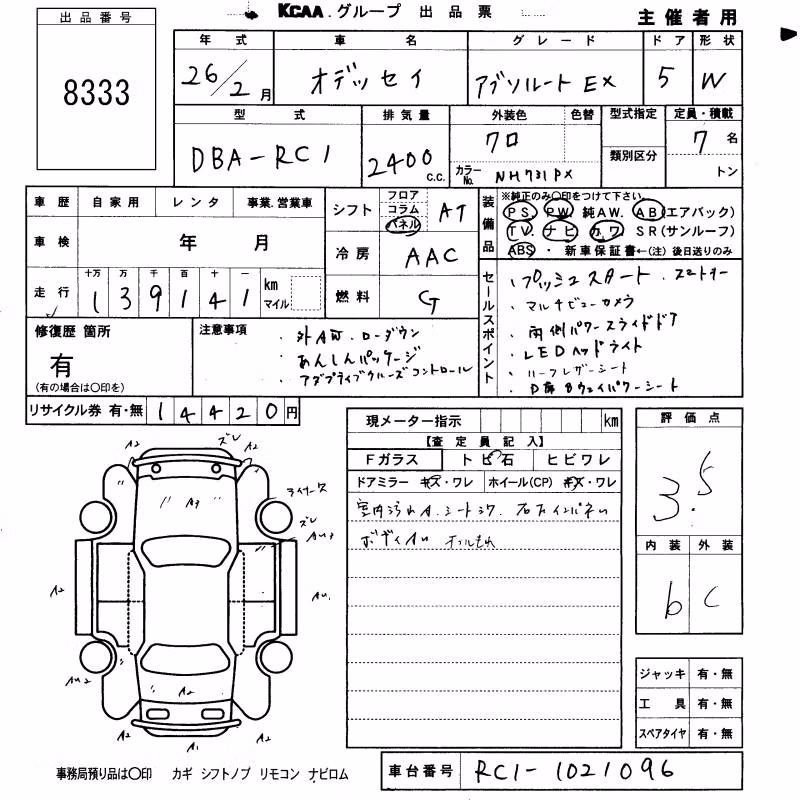 KCAA.グループ 出品票 主催者用
出品番号
8333
年式 車名 グレード ドア 形状
26/2月 オデッセイ アブソルートEX 5 W
型式 排気量 外装色 色替 型式指定 定員・積載
DBA-RC1 2400c.c. クロ 類別区分 7名
カラーNo. NH731PX トン
車歴 自家用 レンタ 事業.営業車
シフト フロア コラム パネル AT
車検 年 月
冷房 AAC
走行 十万 万 千 百 十 一 km マイル
139141
燃料 G
装備品 ※純正のみ○印をつけて下さい。
PS PW 純AW. AB(エアバック)
TV ナビ カワ SR(サンルーフ)
ABS ・ 新車保証書←(注)後日送りのみ
セールスポイント
・プッシュスタート .スマートキー
・マルチビューカメラ
・両側パワースライドドア
・LEDヘッドライト
・ハーフレザーシート
・D席8ウェイパワーシート
修復歴 箇所
有
(有の場合は○印を)
注意事項
・外AW.ローダウン
・あんしんパッケージ
・アダプティブクルーズコントロール
リサイクル券 有・無 14420円
現メーター指示 km
【査定員記入】
Fガラス トビ石 ヒビワレ
ドアミラー キズ・ワレ ホイール(CP) キズ・ワレ
室内汚れA.シートシワ.
ボディAU
評価点
3.5
内装 外装
b C
A2 ズレ A2
A3 ライナーケース
ズレ
AU3
A2 A2 AU.
AU2
A2
A2 A1 A2
ジャッキ 有・無
工具 有・無
スペアタイヤ 有・無
事務局預り品は○印 カギ シフトノブ リモコン ナビロム
車台番号 RC1-1021096